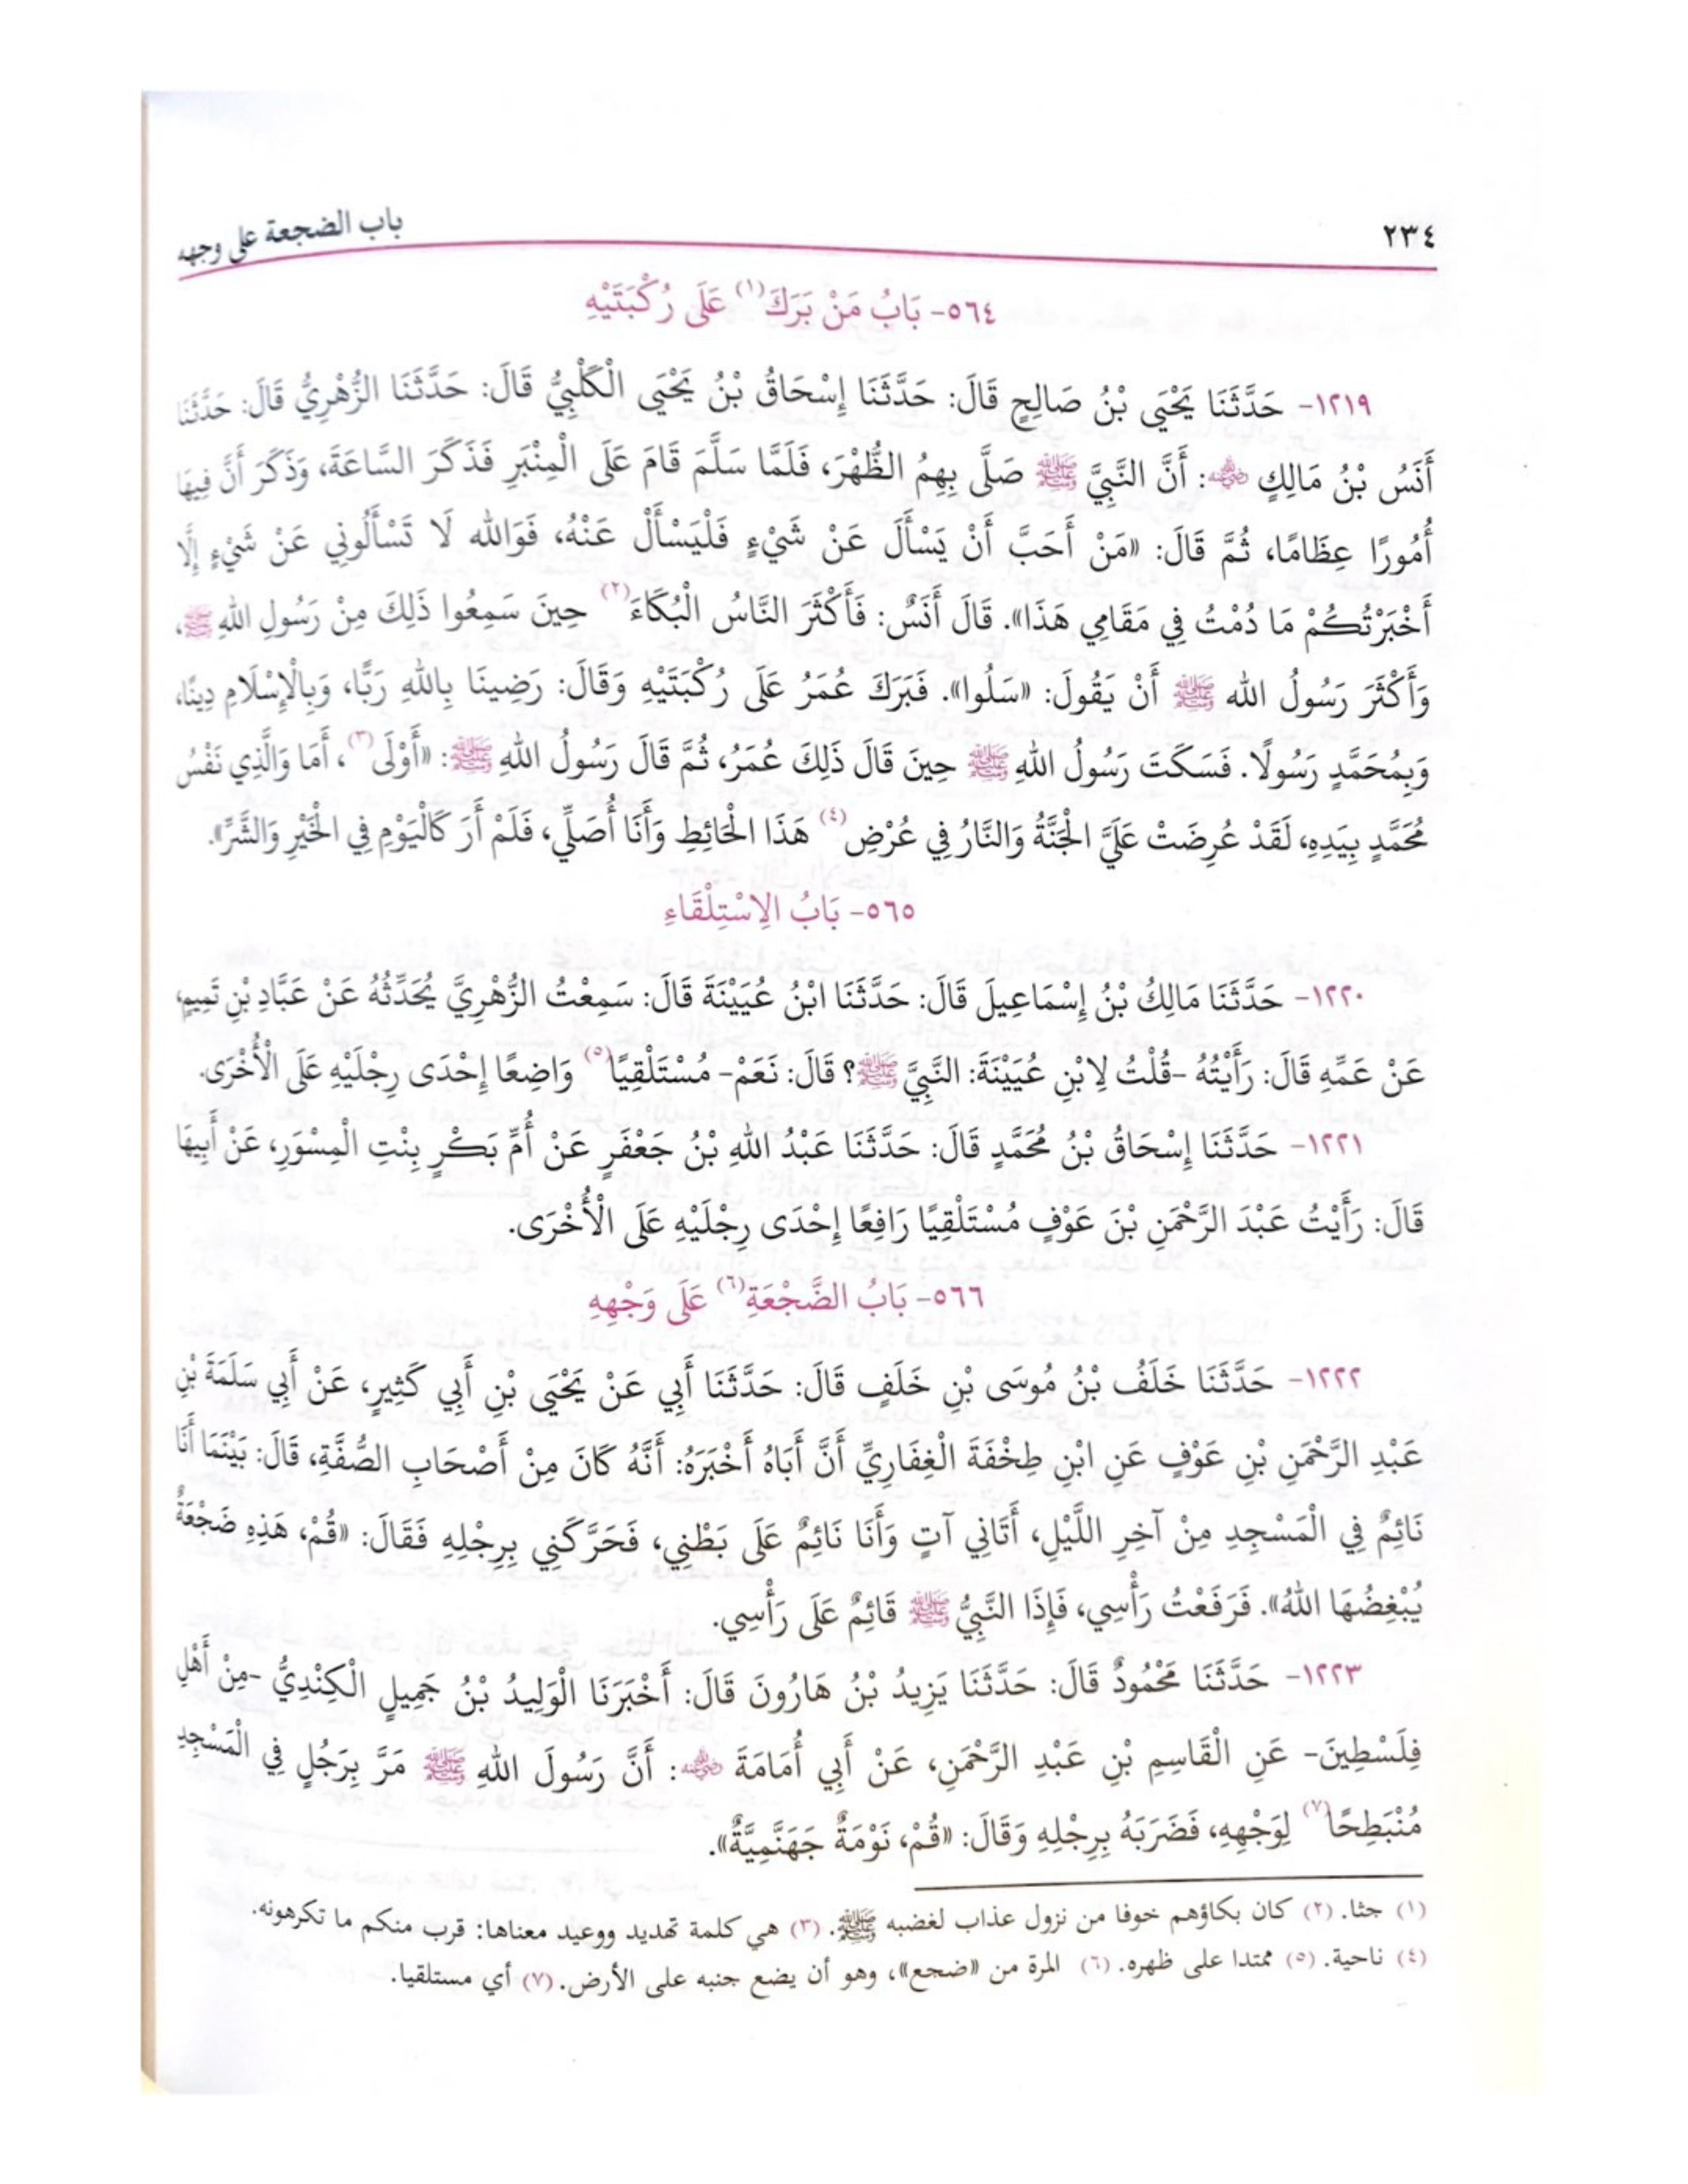 ٢٣٤
باب الضجعة على وجهه
٥٦٤- بَابُ مَنْ بَرَكَ(١) عَلَى رُكْبَتَيْهِ
١٢١٩- حَدَّثَنَا يَحْيَى بْنُ صَالِحٍ قَالَ: حَدَّثَنَا إِسْحَاقُ بْنُ يَحْيَى الْكَلْبِيُّ قَالَ: حَدَّثَنَا الزُّهْرِيُّ قَالَ: حَدَّثَنَا
أَنَسُ بْنُ مَالِكٍ ﵁: أَنَّ النَّبِيَّ ﷺ صَلَّى بِهِمُ الظُّهْرَ، فَلَمَّا سَلَّمَ قَامَ عَلَى الْمِنْبَرِ فَذَكَرَ السَّاعَةَ، وَذَكَرَ أَنَّ فِيهَا
أُمُورًا عِظَامًا، ثُمَّ قَالَ: «مَنْ أَحَبَّ أَنْ يَسْأَلَ عَنْ شَيْءٍ فَلْيَسْأَلْ عَنْهُ، فَوَالله لَا تَسْأَلُونِي عَنْ شَيْءٍ إِلَّا
أَخْبَرْتُكُمْ مَا دُمْتُ فِي مَقَامِي هَذَا». قَالَ أَنَسٌ: فَأَكْثَرَ النَّاسُ الْبُكَاءَ(٢) حِينَ سَمِعُوا ذَلِكَ مِنْ رَسُولِ اللهِ ﷺ،
وَأَكْثَرَ رَسُولُ الله ﷺ أَنْ يَقُولَ: «سَلُوا». فَبَرَكَ عُمَرُ عَلَى رُكْبَتَيْهِ وَقَالَ: رَضِينَا بِاللهِ رَبًّا، وَبِالْإِسْلَامِ دِينًا،
وَبِمُحَمَّدٍ رَسُولًا. فَسَكَتَ رَسُولُ اللهِ ﷺ حِينَ قَالَ ذَلِكَ عُمَرُ، ثُمَّ قَالَ رَسُولُ اللهِ ﷺ: «أَوْلَى(٣)، أَمَا وَالَّذِي نَفْسُ
مُحَمَّدٍ بِيَدِهِ، لَقَدْ عُرِضَتْ عَلَيَّ الْجَنَّةُ وَالنَّارُ فِي عُرْضِ(٤) هَذَا الْحَائِطِ وَأَنَا أُصَلِّي، فَلَمْ أَرَ كَالْيَوْمِ فِي الْخَيْرِ وَالشَّرِّ».
٥٦٥- بَابُ الِاسْتِلْقَاءِ
١٢٢٠- حَدَّثَنَا مَالِكُ بْنُ إِسْمَاعِيلَ قَالَ: حَدَّثَنَا ابْنُ عُيَيْنَةَ قَالَ: سَمِعْتُ الزُّهْرِيَّ يُحَدِّثُهُ عَنْ عَبَّادِ بْنِ تَمِيمٍ،
عَنْ عَمِّهِ قَالَ: رَأَيْتُهُ -قُلْتُ لِابْنِ عُيَيْنَةَ: النَّبِيَّ ﷺ؟ قَالَ: نَعَمْ- مُسْتَلْقِيًا(٥) وَاضِعًا إِحْدَى رِجْلَيْهِ عَلَى الْأُخْرَى.
١٢٢١- حَدَّثَنَا إِسْحَاقُ بْنُ مُحَمَّدٍ قَالَ: حَدَّثَنَا عَبْدُ اللهِ بْنُ جَعْفَرٍ عَنْ أُمِّ بَكْرٍ بِنْتِ الْمِسْوَرِ، عَنْ أَبِيهَا
قَالَ: رَأَيْتُ عَبْدَ الرَّحْمَنِ بْنَ عَوْفٍ مُسْتَلْقِيًا رَافِعًا إِحْدَى رِجْلَيْهِ عَلَى الْأُخْرَى.
٥٦٦- بَابُ الضَّجْعَةِ(٦) عَلَى وَجْهِهِ
١٢٢٢- حَدَّثَنَا خَلَفُ بْنُ مُوسَى بْنِ خَلَفٍ قَالَ: حَدَّثَنَا أَبِي عَنْ يَحْيَى بْنِ أَبِي كَثِيرٍ، عَنْ أَبِي سَلَمَةَ بْنِ
عَبْدِ الرَّحْمَنِ بْنِ عَوْفٍ عَنِ ابْنِ طِخْفَةَ الْغِفَارِيِّ أَنَّ أَبَاهُ أَخْبَرَهُ: أَنَّهُ كَانَ مِنْ أَصْحَابِ الصُّفَّةِ، قَالَ: بَيْنَمَا أَنَا
نَائِمٌ فِي الْمَسْجِدِ مِنْ آخِرِ اللَّيْلِ، أَتَانِي آتٍ وَأَنَا نَائِمٌ عَلَى بَطْنِي، فَحَرَّكَنِي بِرِجْلِهِ فَقَالَ: «قُمْ، هَذِهِ ضَجْعَةٌ
يُبْغِضُهَا اللهُ». فَرَفَعْتُ رَأْسِي، فَإِذَا النَّبِيُّ ﷺ قَائِمٌ عَلَى رَأْسِي.
١٢٢٣- حَدَّثَنَا مَحْمُودٌ قَالَ: حَدَّثَنَا يَزِيدُ بْنُ هَارُونَ قَالَ: أَخْبَرَنَا الْوَلِيدُ بْنُ جَمِيلٍ الْكِنْدِيُّ -مِنْ أَهْلِ
فِلَسْطِينَ- عَنِ الْقَاسِمِ بْنِ عَبْدِ الرَّحْمَنِ، عَنْ أَبِي أُمَامَةَ ﵁: أَنَّ رَسُولَ اللهِ ﷺ مَرَّ بِرَجُلٍ فِي الْمَسْجِدِ
مُنْبَطِحًا(٧) لِوَجْهِهِ، فَضَرَبَهُ بِرِجْلِهِ وَقَالَ: «قُمْ، نَوْمَةٌ جَهَنَّمِيَّةٌ».
(١) جثا. (٢) كان بكاؤهم خوفا من نزول عذاب لغضبه ﷺ. (٣) هي كلمة تهديد ووعيد معناها: قرب منكم ما تكرهونه.
(٤) ناحية. (٥) ممتدا على ظهره. (٦) المرة من «ضجع»، وهو أن يضع جنبه على الأرض. (٧) أي مستلقيا.